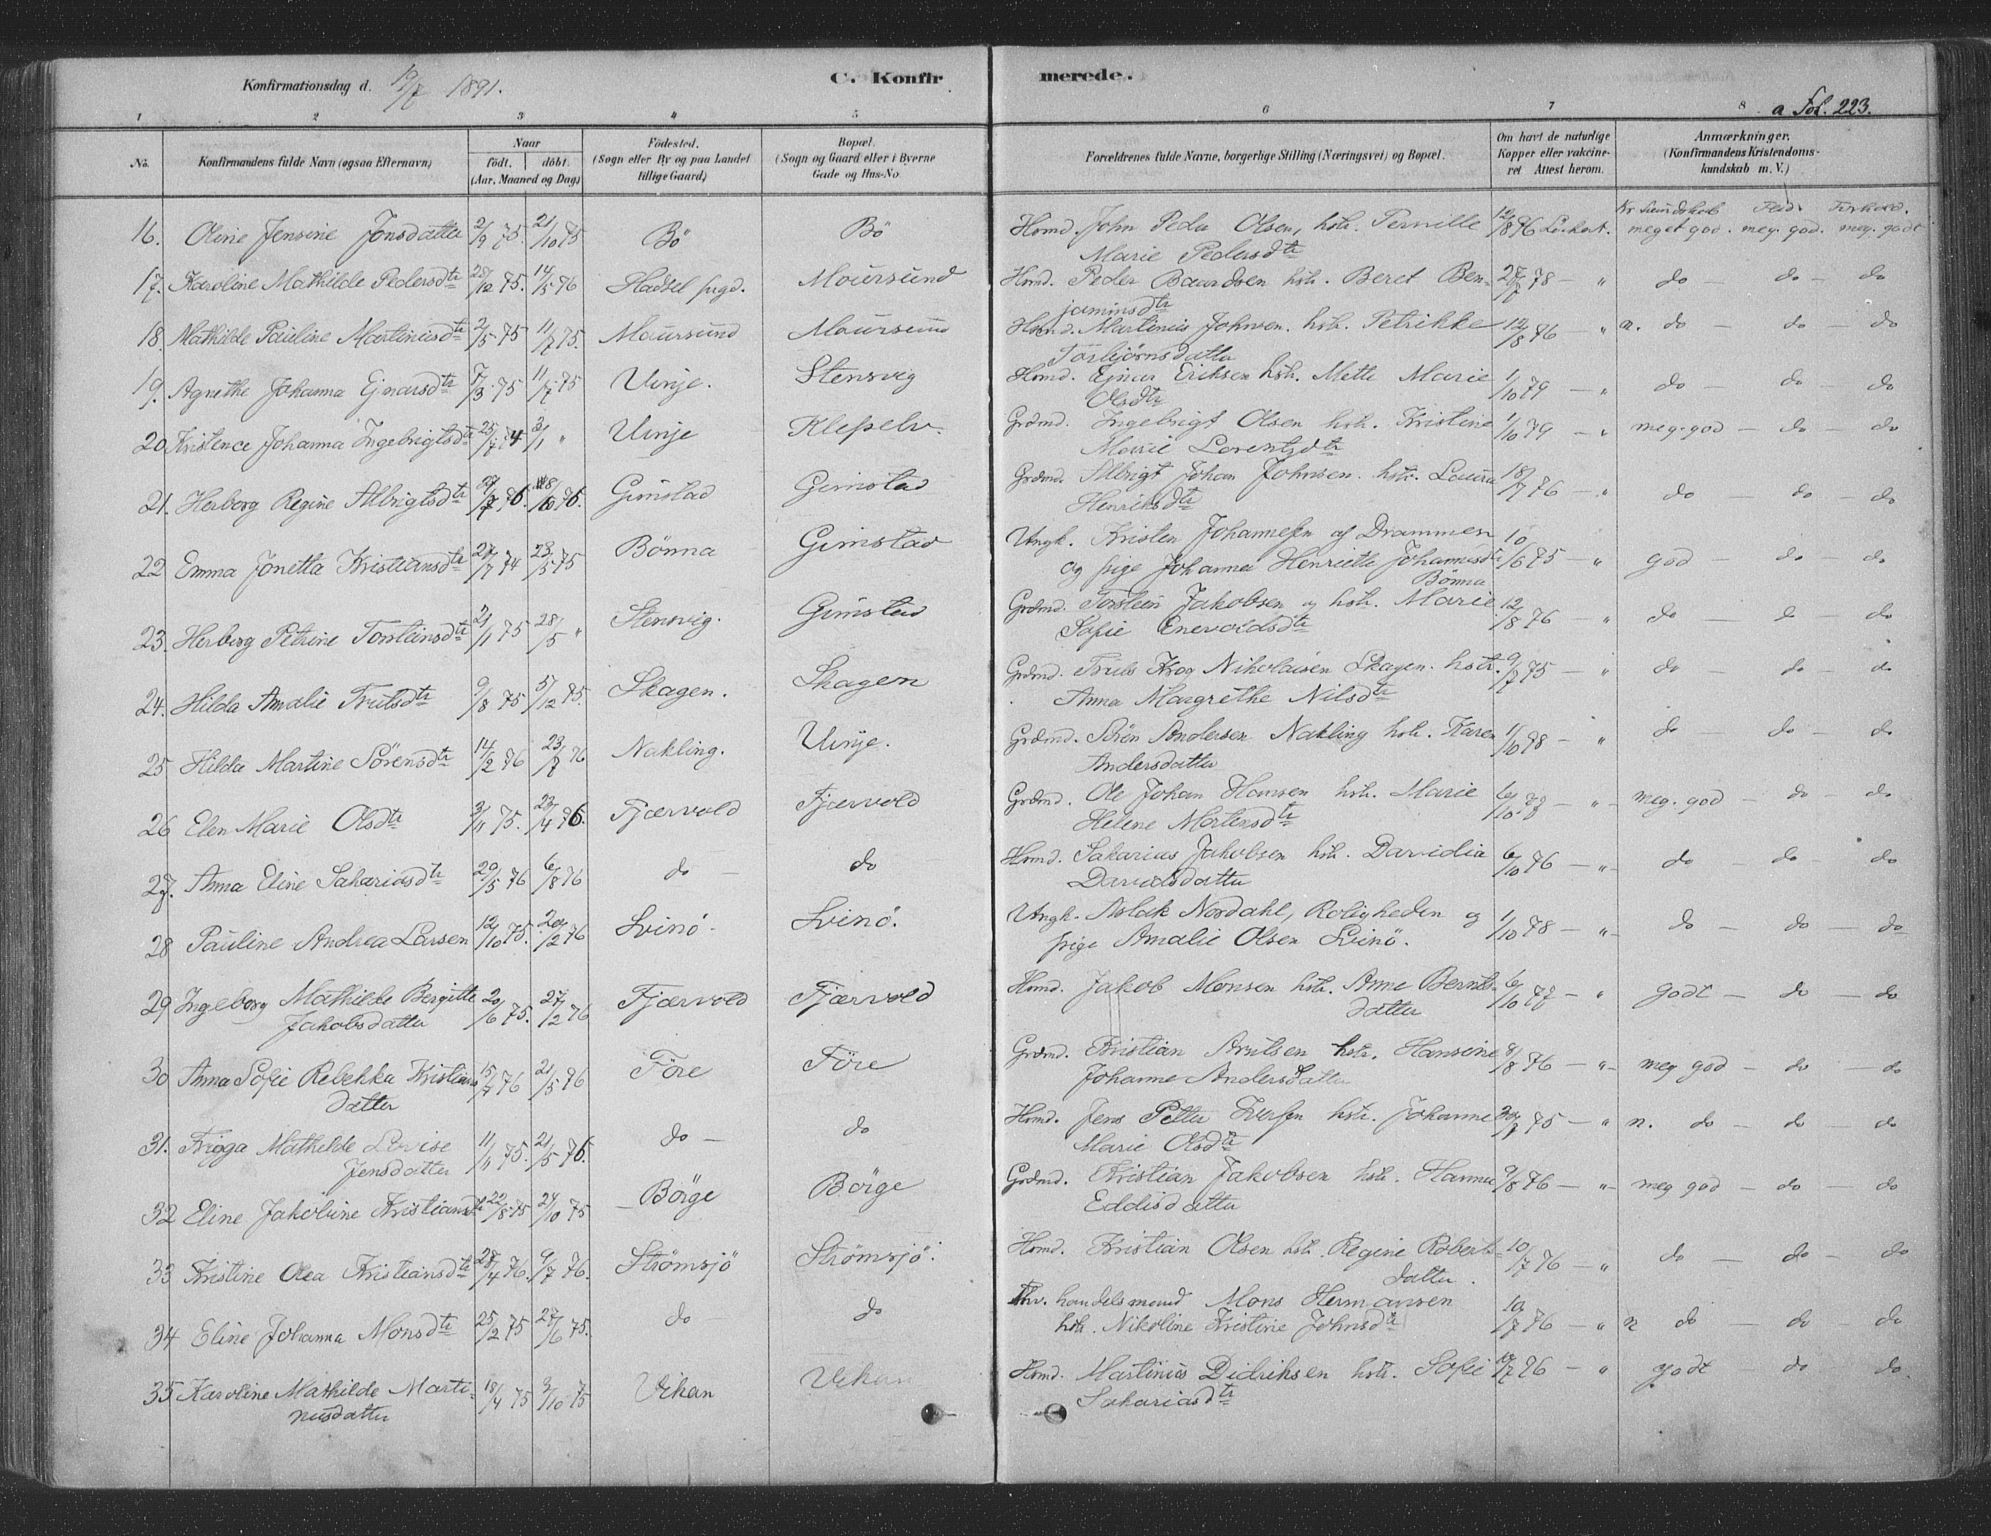 Konfirmationsdag d. 12/7 1891.
C. Konfirmerede.
a Fol. 223.
1 2 3 4 5 6 7 8
No. Konfirmandens fulde Navn (ogsaa Efternavn) Naar født. døbt. (Aar, Maaned og Dag) Födested. (Sogn eller By og paa Landet tillige Gaard) Bopæl. (Sogn og Gaard eller i Byerne Gade og Hus-No. Forældrenes fulde Navne, borgerlige Stilling (Næringsvei) og Bopæl. Om havt de naturlige Kopper eller vakcineret Attest herom. Anmærkninger. (Konfirmandens Kristendomskundskab m. V.)
Kr kundskab Flid Forhold.
16. Oline Jensine Jonsdatter 2/9 75. 21/10 75 Bö Bö Hmd. John Peder Olsen, hstr. Pernille 12/8 76 Lockert. meget god. meg. god. meg. godt
Marie Pedersdtr
17. Karoline Mathilde Pedersdtr 28/12 75. 14/5 76 Hadsel prgd. Maursund Hmd. Peder Baardsen hstr. Beret Ben- 27/7 78 — " do — do — do
jaminsdtr
18. Mathilde Pauline Martinusdtr 2/5 75 11/7 75. Maursund Maursund Hmd. Martinus Johnsen. hstr. Petrikke 12/8 76 — " n. do — do — do
Torbjörnsdatter
19. Agnethe Johanna Ejnarsdtr 7/3 75 11/7 75 Vinje. Stensvig Hmd. Ejnar Eriksen hstr. Mette Marie 1/10 79 — " do — do — do
Olsdtr
20 Kristence Johanna Ingebrigtsdtr 25/7 74 3/1 " Vinje Klepelv. Grdmd. Ingebrigt Olsen hstr. Kristine 1/10 79 — " meg. god — do — do
Marie Lorentzdtr
21. Herborg Regine Albrigtsdtr Gimstad Gimstad Grdmd. Albrigt Johan Johnsen. hstr. Laura 18/7 76 — " do — do — do
Henriksdtr
22 Emma Jonetta Kristiansdtr 27/7 74 23/5 75 Bönna Gimstad Ungk. Kristen Johannessen af Drammen 10/6 75 — " god — do — do
og pige Johanna Henriette Johannesdtr
Bönna
23. Herborg Petrine Torsteinsdtr 21/1 75 28/5 " Stensvig. Gimstad Grdmd. Torstein Jakobsen og hstr. Marie 12/8 76 — " do — do — do
Sofie Enevoldsdtr
24. Hilda Amalie Trulsdtr 9/8 75 5/12 75. Skagen. Skagen Grdmd. Truls Krog Nikolaisen Skagen. hstr. 9/7 75 — " do — do — do
Anna Margrethe Nilsdtr
25 Hilda Martine Sörensdtr 14/2 76 23/7 76 Nakling. Vinje. Grdmd. Sören Andersen Nakling hstr. Karen 1/10 78 — " do — do — do
Andersdatter
26 Elen Marie Olsdtr 3/11 75. 23/4 76. Fjærvold Fjærvold Grdmd. Ole Johan Hansen hstr. Marie 6/10 78 — " meg. god — do — do
Helene Mortensdtr
27. Anna Eline Sakariasdtr 29/5 76 6/8 76 do — do Hmd. Sakarias Jakobsen hstr. Davidia 6/10 76 — " do — do — do
Davidsdatter
28 Pauline Andrea Larsen 12/10 75. 20/2 76 Svinö. Svinö. Ungk. Aslak Nordahl, Roligheden og 1/10 78 — " do — do — do
pige Amalie Olsen Svinö.
29 Ingeborg Mathilde Bergitte 20/6 75. 27/2 76 Fjærvold Fjærvold Hmd. Jakob Monsen hstr. Anne Bernts- 6/10 78 — " godt — do — do
Jakobsdatter datter
30 Anna Sofie Rebekka Kristians 15/7 76 21/5 76 Före Före Grdmd. Kristian Arntsen hstr. Hansine 8/8 76 — " meg god — do — do
datter Johanne Andersdatter
31. Frigga Mathilde Lovise 11/11 75. 21/5 76. do — do Hmd. Jens Petter Iversen hstr. Johanne 30/7 75 — " n. do — do — do
Jensdatter Marie Olsdtr
32 Eline Jakobine Kristiansdtr 22/8 75 24/10 75 Börge Börge Grdmd. Kristian Jakobsen hstr. Hanna 9/8 76 — " meg god — do — do
Eddisdatter
33 Kristine Olea Kristiansdtr 28/4 76. 9/7 76. Strömsjö Strömsjö. Hmd. Kristian Olsen hstr. Regine Roberts- 10/7 76 — " do — do — do
datter.
34 Eline Johanna Monsdtr 25/2 75 27/6 75. do — do Fhv. handelsmand Mons Hermansen 10/7 76 — " n do — do — do
hstr. Nikoline Kristine Johnsdtr
35 Karoline Mathilde Marti- 18/4 75 3/10 75 Vikan Vikan Hmd. Martinus Didriksen hstr. Sofie 10/7 76 — " godt do do.
nusdatter Sakariasdtr